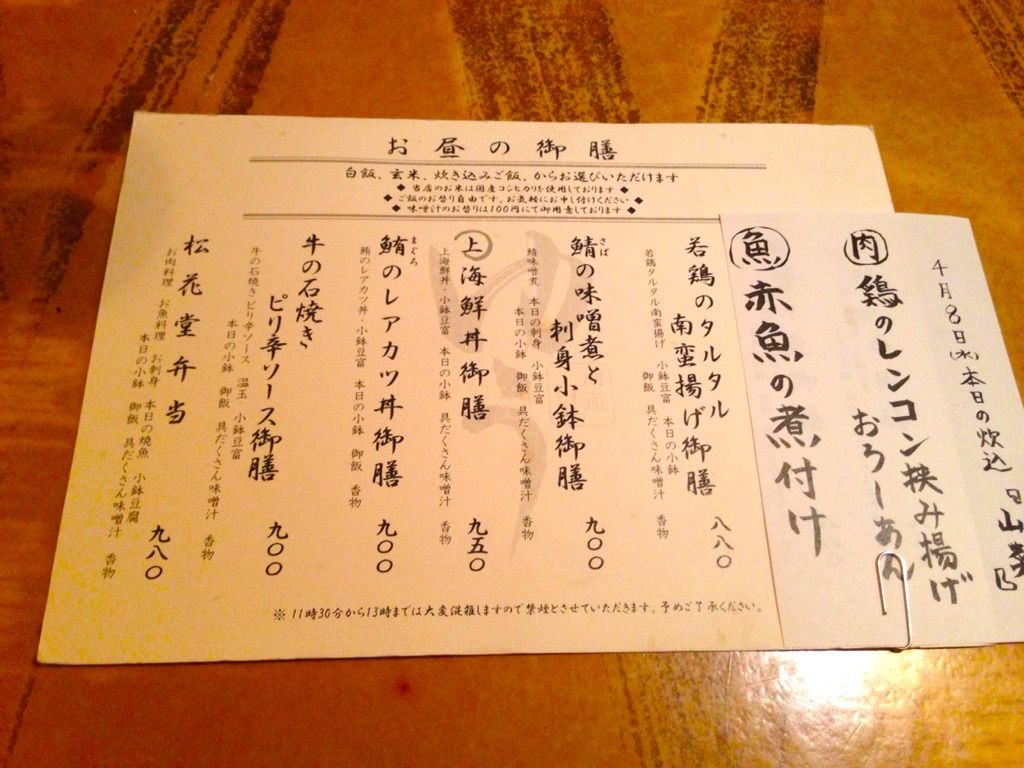 お昼の御膳
白飯、玄米、炊き込みご飯、からお選びいただけます
◆ 当店のお米は国産コシヒカリを使用しております ◆
◆ ご飯のお替り自由です。お気軽にお申し付けください ◆
◆ 味噌汁のお替りは100円にて御用意しております ◆
4月8日(水)本日の炊込
山菜
肉 鶏のレンコン挟み揚げ
おろしあん
魚 赤魚の煮付け
若鶏のタルタル
南蛮揚げ御膳 八八〇
若鶏タルタル南蛮揚げ 小鉢豆富 本日の小鉢
御飯 具だくさん味噌汁 香物
さば
鯖の味噌煮と
刺身小鉢御膳 九〇〇
鯖味噌煮 本日の刺身 小鉢豆富
本日の小鉢 御飯 具だくさん味噌汁 香物
上 海鮮丼御膳 九五〇
上海鮮丼・小鉢豆富 本日の小鉢 具だくさん味噌汁 香物
まぐろ
鮪のレアカツ丼御膳 九〇〇
鮪のレアカツ丼・小鉢豆富 本日の小鉢 御飯 香物
牛の石焼き
ピリ辛ソース御膳 九〇〇
牛の石焼きピリ辛ソース 温玉 小鉢豆富
本日の小鉢 御飯 具だくさん味噌汁 香物
松花堂弁当 九八〇
お肉料理 お魚料理 お刺身 本日の焼魚 小鉢豆腐
本日の小鉢 御飯 具だくさん味噌汁 香物
※ 11時30分から13時までは大変混雑しますので禁煙とさせていただきます。予めご了承ください。